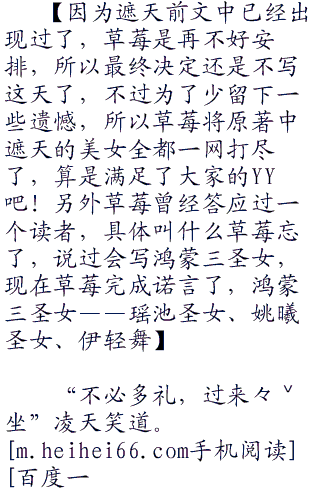 【因为遮天前文中已经出
现过了，草莓是再不好安
排，所以最终决定还是不写
这天了，不过为了少留下一
些遗憾，所以草莓将原著中
遮天的美女全都一网打尽
了，算是满足了大家的YY
吧！另外草莓曾经答应过一
个读者，具体叫什么草莓忘
了，说过会写鸿蒙三圣女，
现在草莓完成诺言了，鸿蒙
三圣女——瑶池圣女、姚曦
圣女、伊轻舞】
“不必多礼，过来々ˇ
坐”凌天笑道。
[m.heihei66.com手机阅读]
[百度一